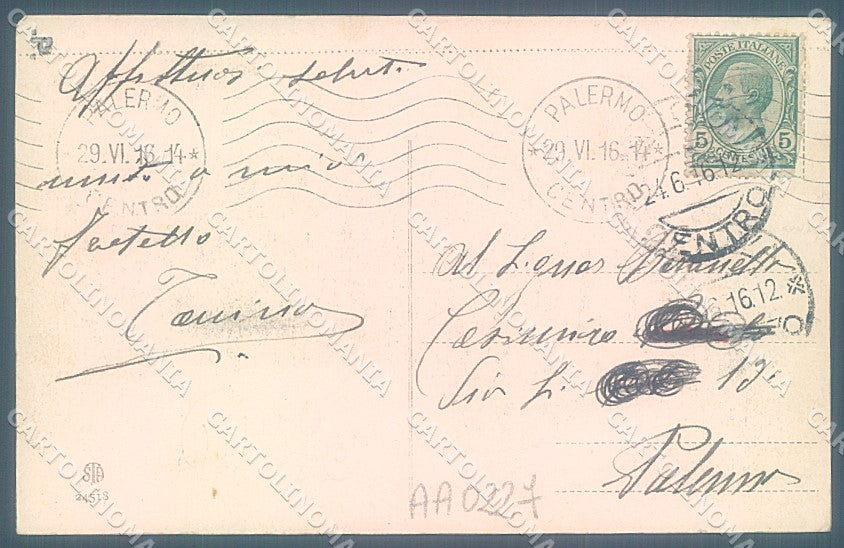 Affettuosi saluti
unito a mio
fratello
Tanino
PALERMO
29.VI.16.14
CENTRO
PALERMO
29.VI.16.14
CENTRO
POSTE ITALIANE
5 5
CENTESIMI
24.6.16.12
CENTRO
6.16.12
Al Signor
Casimiro
13
Palermo
STA
AA0227
CARTOLINOMANIA